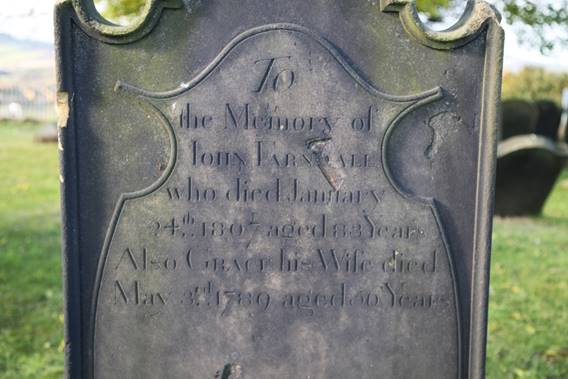 To
the Memory of
JOHN
who died January
24th 1807 aged 83 Years
Also GRACE his Wife died
May 3rd 1789 aged 60 Years